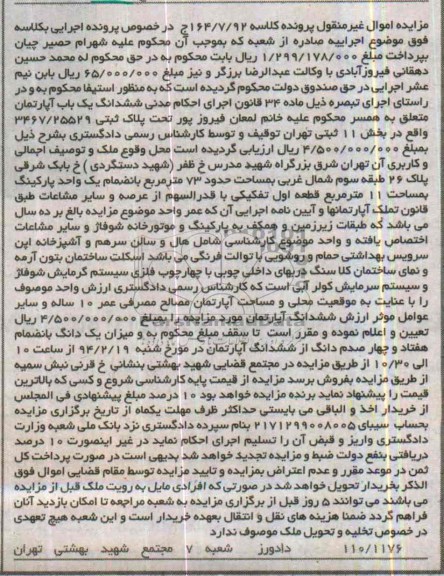 مزایده اموال غیرمنقول پرونده کلاسه ۱۶۴/۷/۹۲ج در خصوص پرونده اجرایی بکلاسه
فوق موضوع اجراییه صادره از شعبه که بموجب آن محکوم علیه شهرام حصیر چیان
بپرداخت مبلغ ۱/۲۹۹/۱۷۸/۰۰۰ ریال بابت محکوم به در حق محکوم له محمد حسین
دهقانی فیروزآبادی با وکالت عبدالرضا برزگر و نیز مبلغ ۶۵/۰۰۰/۰۰۰ ریال بابن نیم
عشر اجرایی در حق صندوق دولت محکوم گردیده است که به منظور استیفا محکوم به و در
راستای اجرای تبصره ذیل ماده ۳۴ قانون اجرای احکام مدنی ششدانگ یک باب آپارتمان
متعلق به همسر محکوم علیه خانم لمعان فیروز پور تحت پلاک ثبتی ۳۴۶۷/۲۵۵۲۹
واقع در بخش ۱۱ ثبتی تهران توقیف و توسط کارشناس رسمی دادگستری بشرح ذیل
بمبلغ ۴/۵۰۰/۰۰۰/۰۰۰ ریال ارزیابی گردیده است محل وقوع ملک و توصیف اجمالی
و کاربری آن تهران شرق بزرگراه شهید مدرس خ ظفر (شهید دستگردی) خ بابک شرقی
پلاک ۲۶ طبقه سوم شمال غربی بمساحت حدود ۷۳ مترمربع بانضمام یک واحد پارکینگ
بمساحت ۱۱ مترمربع قطعه اول تفکیکی با قدرالسهم از عرصه و سایر مشاعات طبق
قانون تملک آپارتمانها و آیین نامه اجرایی آن که عمر واحد موضوع مزایده بالغ بر ده سال
می باشد که طبقات زیرزمین و همکف به پارکینگ و موتورخانه شوفاژ و سایر مشاعات
اختصاص یافته و واحد موضوع کارشناسی شامل هال و سالن سرهم و آشپزخانه اپن
سرویس بهداشتی حمام و روشویی با توالت فرنگی می باشد اسکلت ساختمان بتون آرمه
و نمای ساختمان کلا سنگ دربهای داخلی چوبی با چهارچوب فلزی سیستم گرمایش شوفاژ
و سیستم سرمایش کولر آبی است که کارشناس رسمی دادگستری ارزش واحد موصوف
را با عنایت به موقعیت محلی و مساحت آپارتمان مصالح مصرفی عمر ۱۰ ساله و سایر
عوامل موثر ارزش ششدانگ آپارتمان مورد مزایده را بمبلغ ۴/۵۰۰/۰۰۰/۰۰۰ ریال
تعیین و اعلام نموده و مقرر است تا سقف مبلغ محکوم به و میزان یک دانگ بانضمام
هفتاد و چهار صدم دانگ از ششدانگ آپارتمان در مورخ شنبه ۹۴/۲/۱۹ از ساعت ۱۰
الی ۱۰/۳۰ از طریق مزایده در مجتمع قضایی شهید بهشتی بنشانی خ قرنی نبش سمیه
از طریق مزایده بفروش برسد مزایده از قیمت پایه کارشناسی شروع و کسی که بالاترین
قیمت را پیشنهاد نماید برنده مزایده خواهد بود ۱۰ درصد مبلغ پیشنهادی فی المجلس
از خریدار اخذ و الباقی می بایستی حداکثر ظرف مهلت یکماه از تاریخ برگزاری مزایده
بحساب سیبای ۲۱۷۱۲۹۹۰۰۸۰۰۵ بنام سپرده دادگستری نزد بانک ملی شعبه وزارت
دادگستری واریز و قبض آن را تسلیم اجرای احکام نماید در غیر اینصورت ۱۰ درصد
دریافتی بنفع دولت ضبط و مزایده تجدید خواهد شد بدیهی است در صورت پرداخت کل
ثمن در موعد مقرر و عدم اعتراض بمزایده و تایید مزایده توسط مقام قضایی اموال فوق
الذکر بخریدار تحویل خواهد شد در صورتی که افرادی مایل به رویت ملک قبل از مزایده
می باشند می توانند ۵ روز قبل از برگزاری مزایده به شعبه مراجعه تا امکان بازدید آنان
فراهم گردد ضمنا هزینه های نقل و انتقال بعهده خریدار است و این شعبه هیچ تعهدی
در خصوص تخلیه و تحویل ملک موصوف ندارد
۱۱۰/۱۱۷۶ دادورز شعبه ۷ مجتمع شهید بهشتی تهران